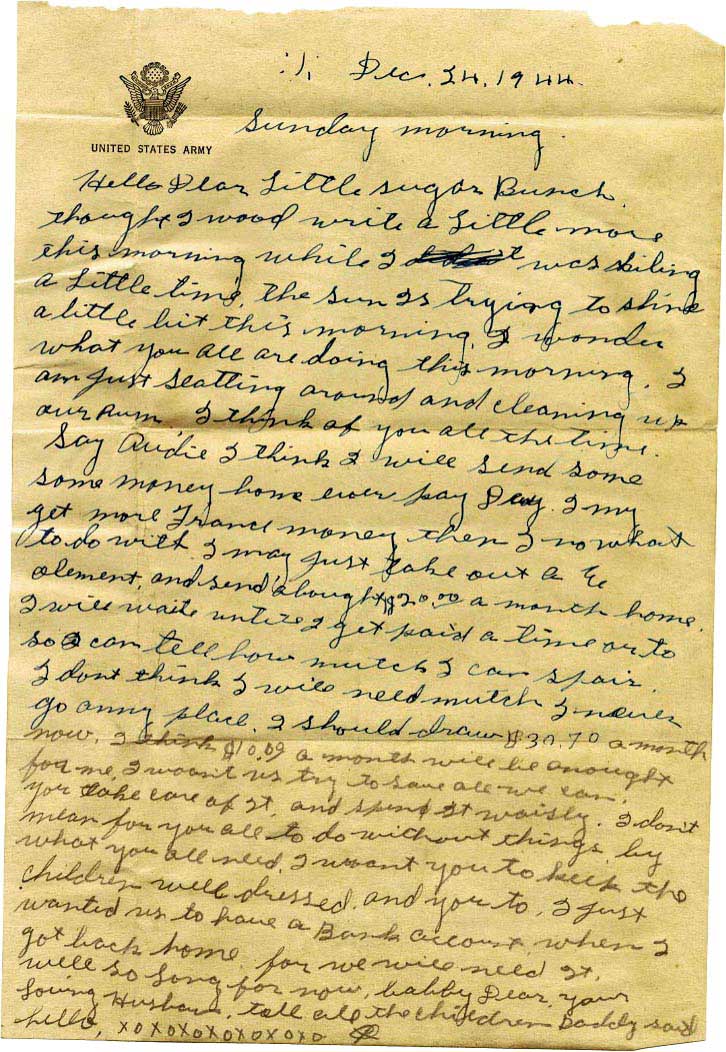 Dec. 24, 1944
UNITED STATES ARMY
Sunday morning.
Hello Dear Little sugar Bunch.
thought I wood write a little more
this morning while I was
a Little time. the sun Is trying to shine
a little bit this morning. I wonder
what you all are doing this morning. I
am just seatting around and cleaning up
our Rum. I think of you all the time.
Say Audie I think I will send some
some money home ever pay Day. I my
get more France money then I no what
to do with. I may just take out a
alement, and send abought $20.00 a month home.
I will waite untile I get paid a time or to
so I can tell how mutch I can spair.
I dont think I will need mutch I never
go anny place. I should draw $30.70 a month
now. I think $10.00 a month will be enought
for me. I woant us try to save all we can.
you take care of It, and spend It waisly. I don't
mean for you all to do without things
what you all need. I woant you to keek the
children well dressed, and you to. I just
wanted us to have a Bank account, when I
got back home. for we will need It.
well so long for now, babby Dear, your
Loving Husban. tell all the children Daddy said
hello, xoxoxoxoxoxoxo